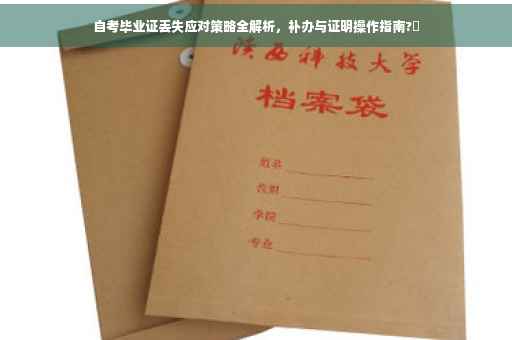 自考毕业证丢失应对策略全解析，补办与证明操作指南?
陕西科技大学
档案袋
姓名
学院
专业